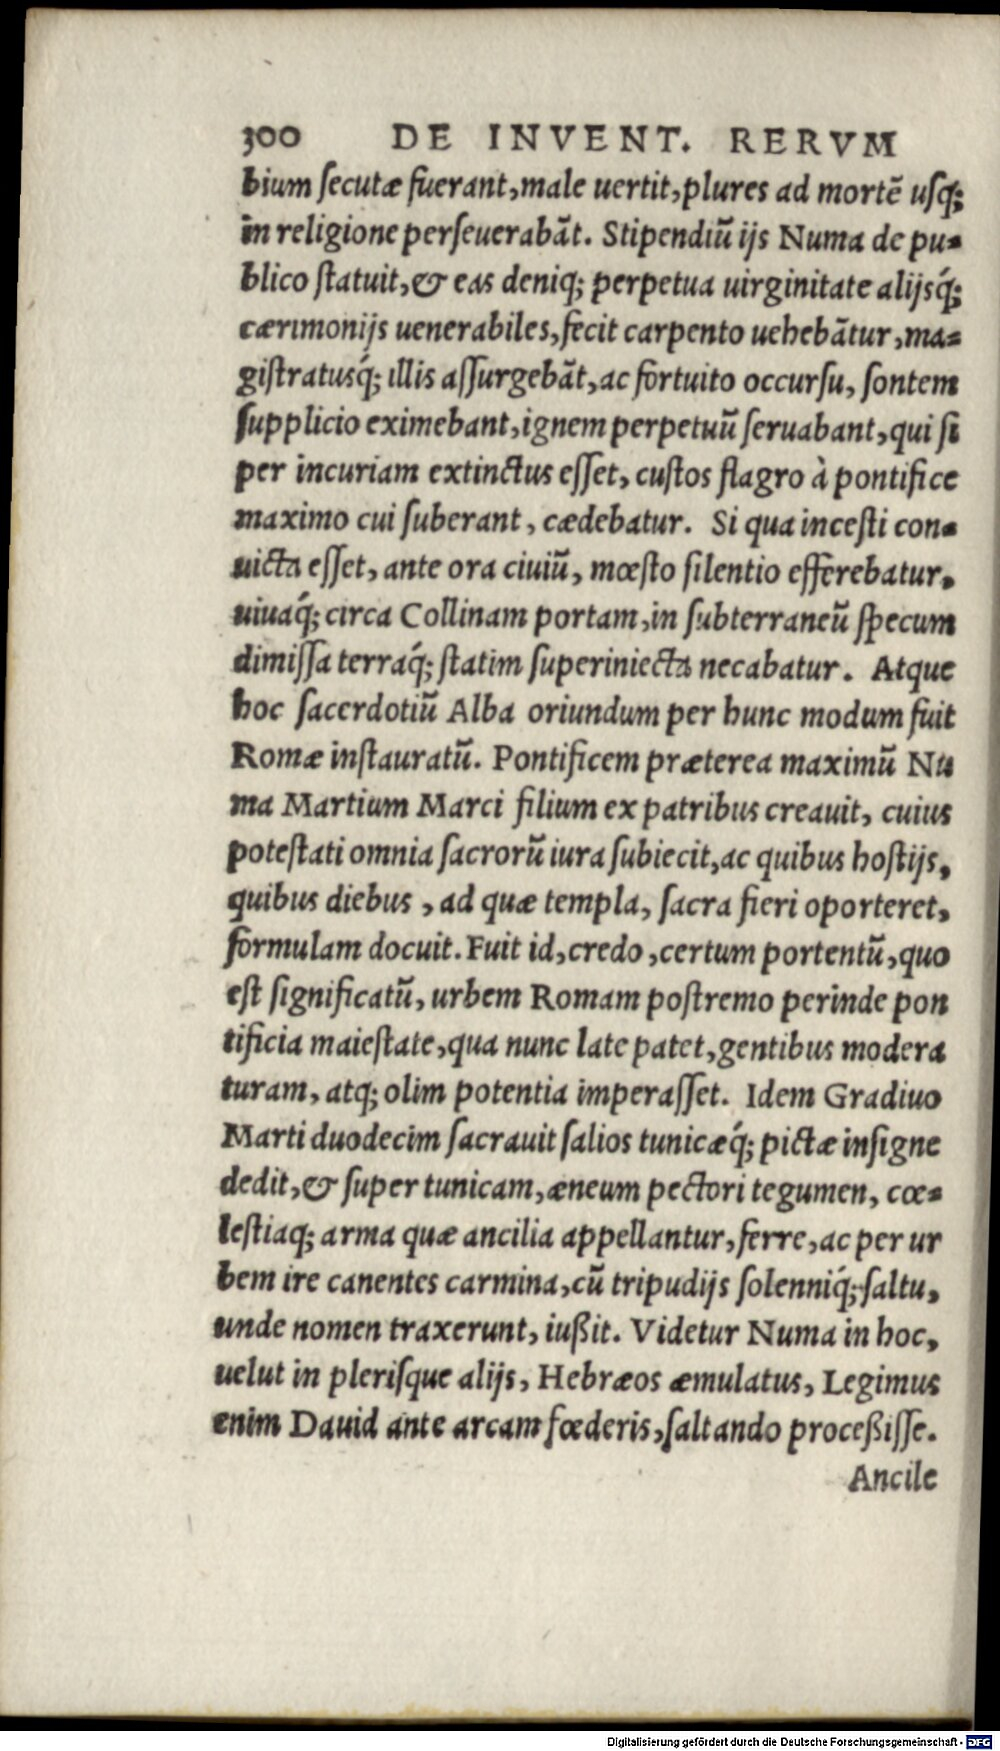 300 DE INVENT. RERVM
bium secutæ fuerant, male uertit, plures ad mortẽ usq;
in religione perseuerabãt. Stipendiũ ijs Numa de pu-
blico statuit, & eas deniq; perpetua uirginitate alijsq́;
cærimonijs uenerabiles, fecit carpento uehebãtur, ma-
gistratusq́; illis assurgebãt, ac fortuito occursu, sontem
supplicio eximebant, ignem perpetuũ seruabant, qui si
per incuriam extinctus esset, custos flagro à pontifice
maximo cui suberant, cædebatur. Si qua incesti con-
uicta esset, ante ora ciuiũ, mœsto silentio efferebatur,
uiuaq́; circa Collinam portam, in subterraneũ specum
dimissa terraq́; statim superiniecta necabatur. Atque
hoc sacerdotiũ Alba oriundum per hunc modum fuit
Romæ instauratũ. Pontificem præterea maximũ Nu
ma Martium Marci filium ex patribus creauit, cuius
potestati omnia sacrorũ iura subiecit, ac quibus hostijs,
quibus diebus, ad quæ templa, sacra fieri oporteret,
formulam docuit. Fuit id, credo, certum portentũ, quo
est significatũ, urbem Romam postremo perinde pon
tificia maiestate, qua nunc late patet, gentibus modera
turam, atq; olim potentia imperasset. Idem Gradiuo
Marti duodecim sacrauit salios tunicæq́; pictæ insigne
dedit, & super tunicam, æneum pectori tegumen, cœ-
lestiaq; arma quæ ancilia appellantur, ferre, ac per ur
bem ire canentes carmina, cũ tripudijs solenniq́; saltu,
unde nomen traxerunt, iußit. Videtur Numa in hoc,
uelut in plerisque alijs, Hebræos æmulatus, Legimus
enim Dauid ante arcam fœderis, saltando proceßisse.
Ancile
Digitalisierung gefördert durch die Deutsche Forschungsgemeinschaft - DFG